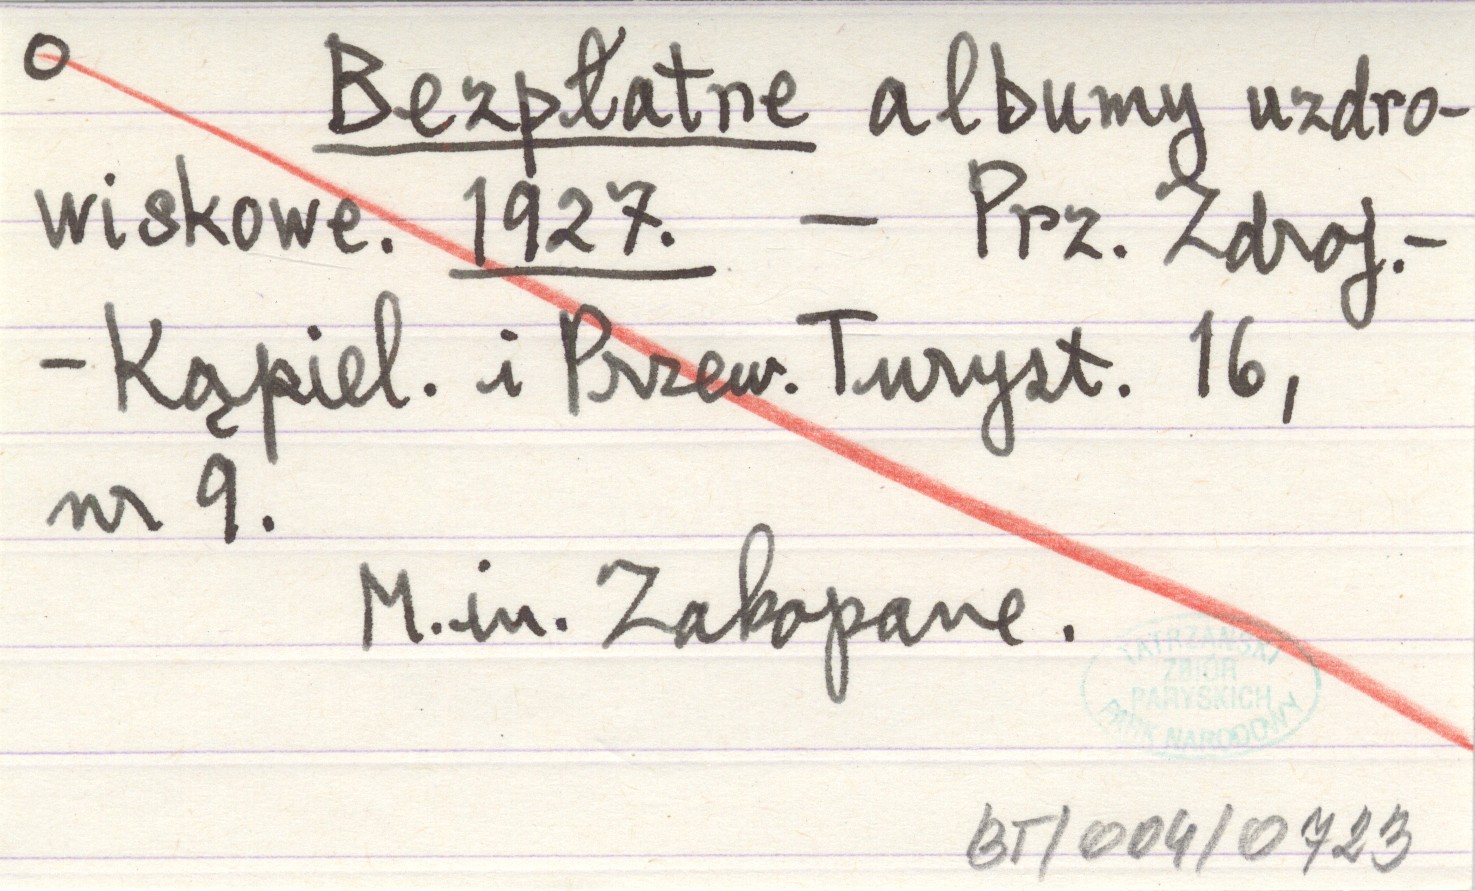 o Bezpłatne albumy uzdro-
wiskowe. 1927. — Prz. Zdroj.-
-Kąpiel. i Przew. Turyst. 16,
nr 9.
M.in. Zakopane.
TATRZAŃSKI
ZBIÓR
PARYSKICH
PARK NARODOWY
BT/004/0723